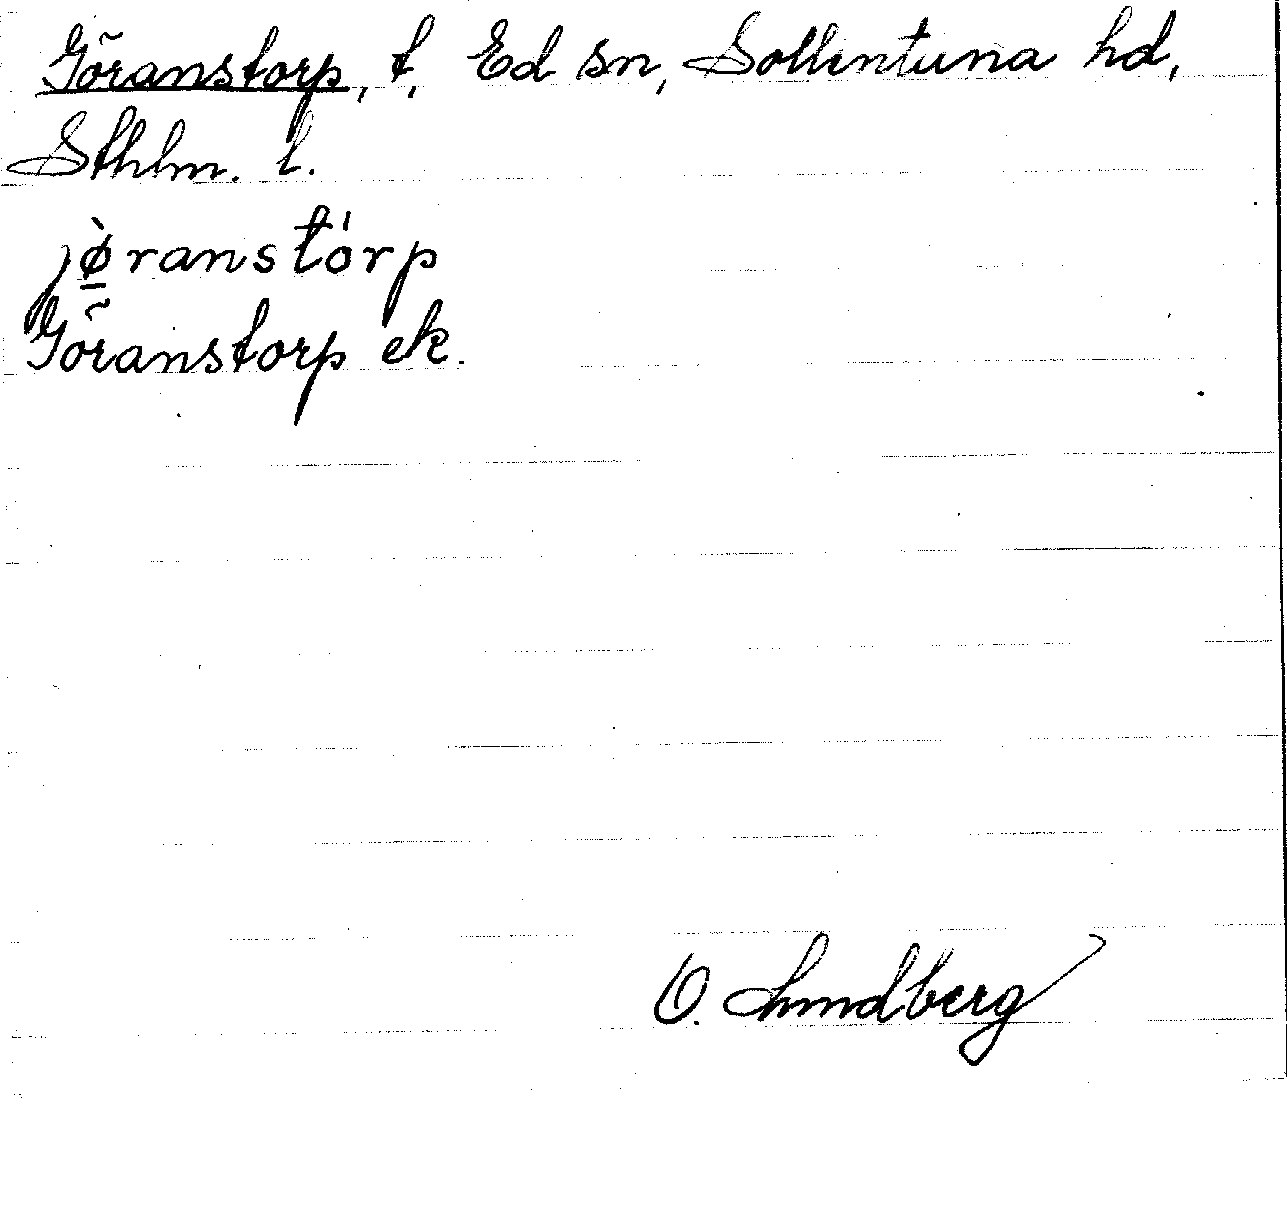 Göranstorp, t, Ed sn, Sollentuna hd,
Sthlm. l.
jø̱̀ranstórp
Göranstorp ek.
O. Lundberg